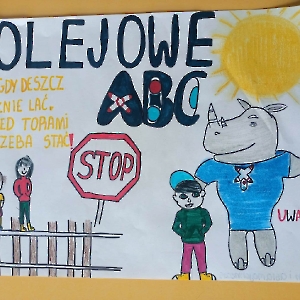 OLEJOWE
ABC
GDY DESZCZ
ZNIE LAĆ.
ED TORAMI
ZEBA STAĆ!
STOP
UWA